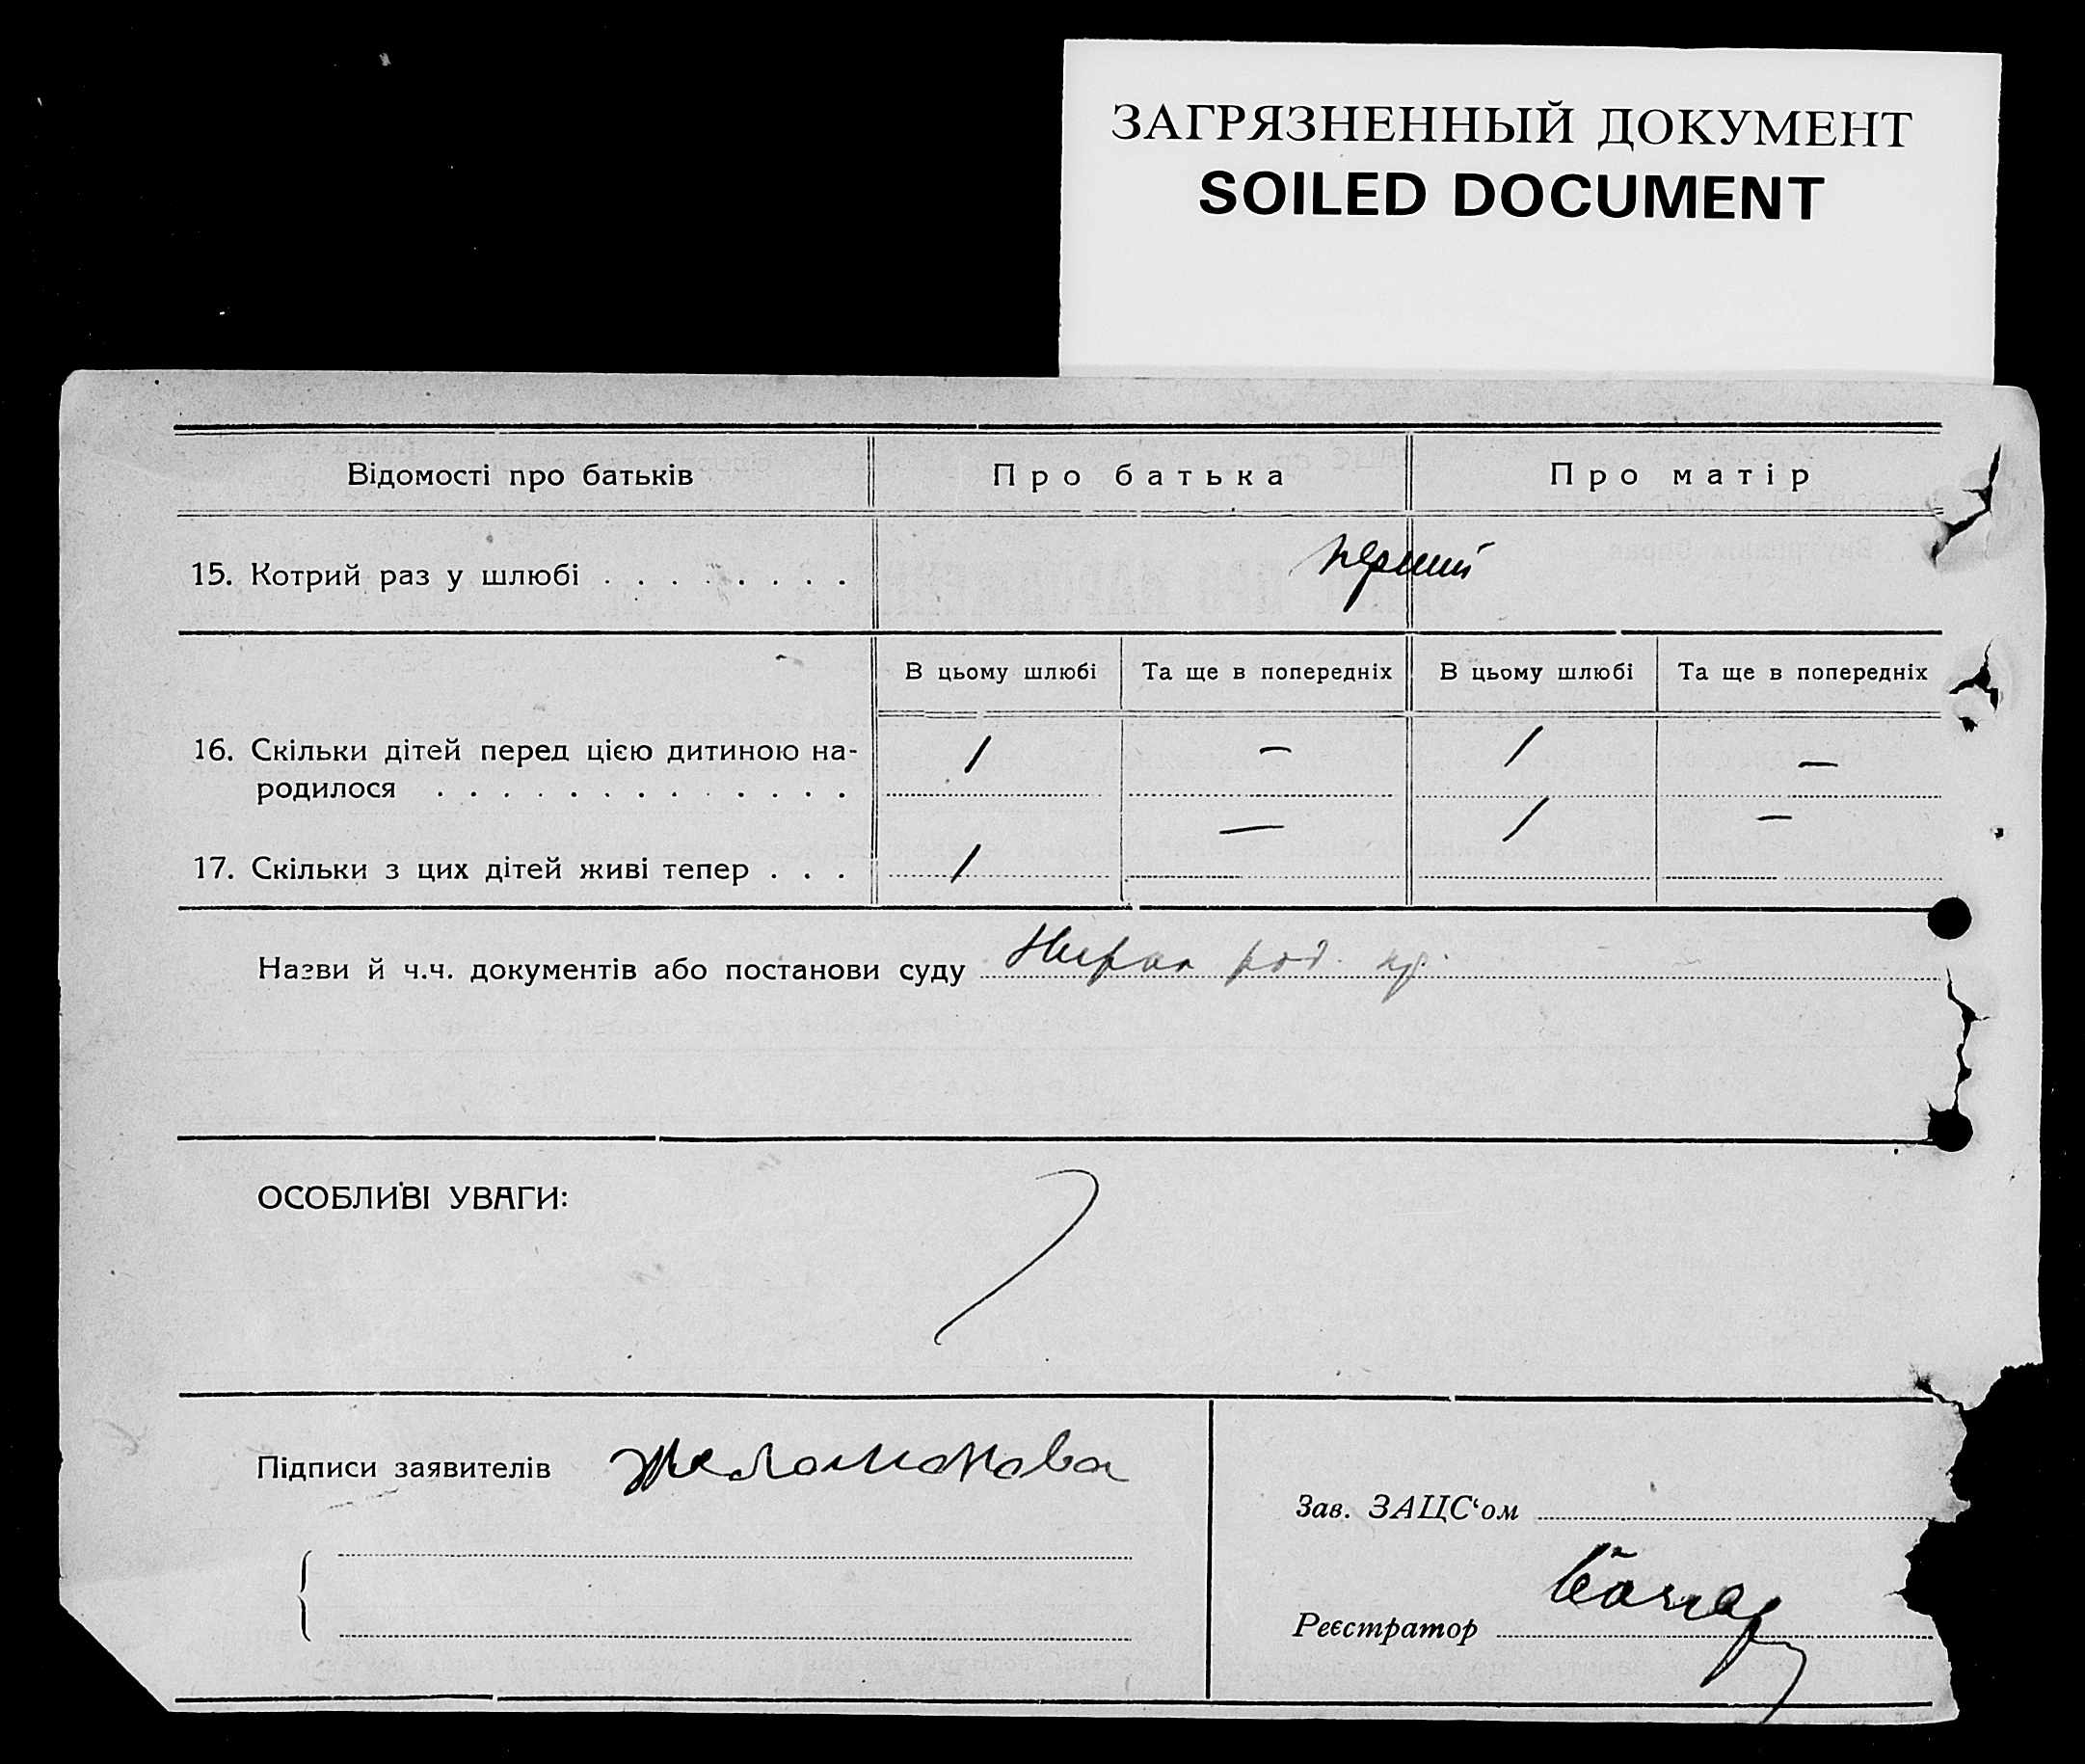 ЗАГРЯЗНЕННЫЙ ДОКУМЕНТ
SOILED DOCUMENT
Відомості про батьків Про батька Про матір
15. Котрий раз у шлюбі . . . . . . . . перший
В цьому шлюбі Та ще в попередніх В цьому шлюбі Та ще в попередніх
16. Скільки дітей перед цією дитиною на- 1 — 1 —
родилося . . . . . . . . . . . . .
17. Скільки з цих дітей живі тепер . . . 1 — 1 —
Назви й ч.ч. документів або постанови суду
ОСОБЛИВІ УВАГИ:
Підписи заявителів
Зав. ЗАЦС‘ом
Реєстратор